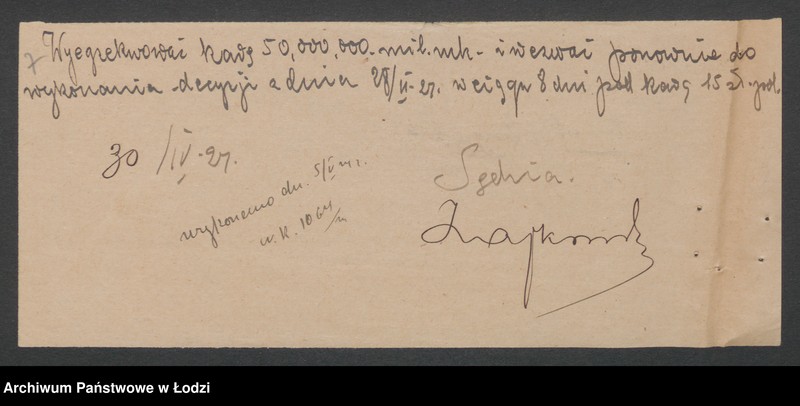 Wyegzekwować karę 50,000,000 mil. mk. i wezwać ponownie do
wykonania decyzji z dnia 28/II-24. w ciągu 8 dni pod karą 15 zł.
30/IV-24.
Sędzia.
wykonano dn. 5/V 24 r.
w. k. 1064/
Archiwum Państwowe w Łodzi